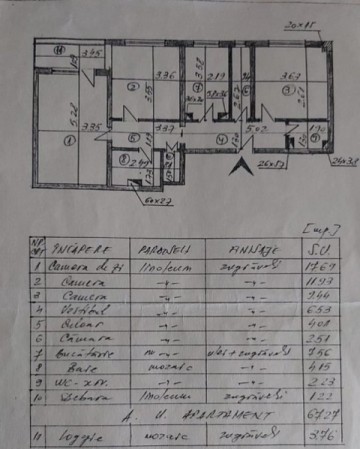 20×15
11
3.45
3.36
2
3.55
3.52
7
2.19
6
2.67
3.67
3
2.67
5.28
3.35
1
5
3.37
4
5.02
1.70
9
8
2.49
10
26×57
24×38
60×27
[mp.]
NR. CRT ÎNCĂPERE PARDOSELI FINISAJE S.U.
1 Camera de zi linoleum zugrăveli 17.69
2 Camera -"- -"- 11.93
3 Camera -"- -"- 9.44
4 Vestibul -"- -"- 6.53
5 Oficiu -"- -"- 4.08
6 Cămara -"- -"- 2.51
7 Bucătărie mo -"- ulei+zugrăveli 7.56
8 Baie mozaic -"- 4.15
9 WC-serv. -"- -"- 2.23
10 Debara linoleum zugrăveli 1.22
A. U. APARTAMENT 67.27
11 Loggie mozaic zugrăveli 3.76